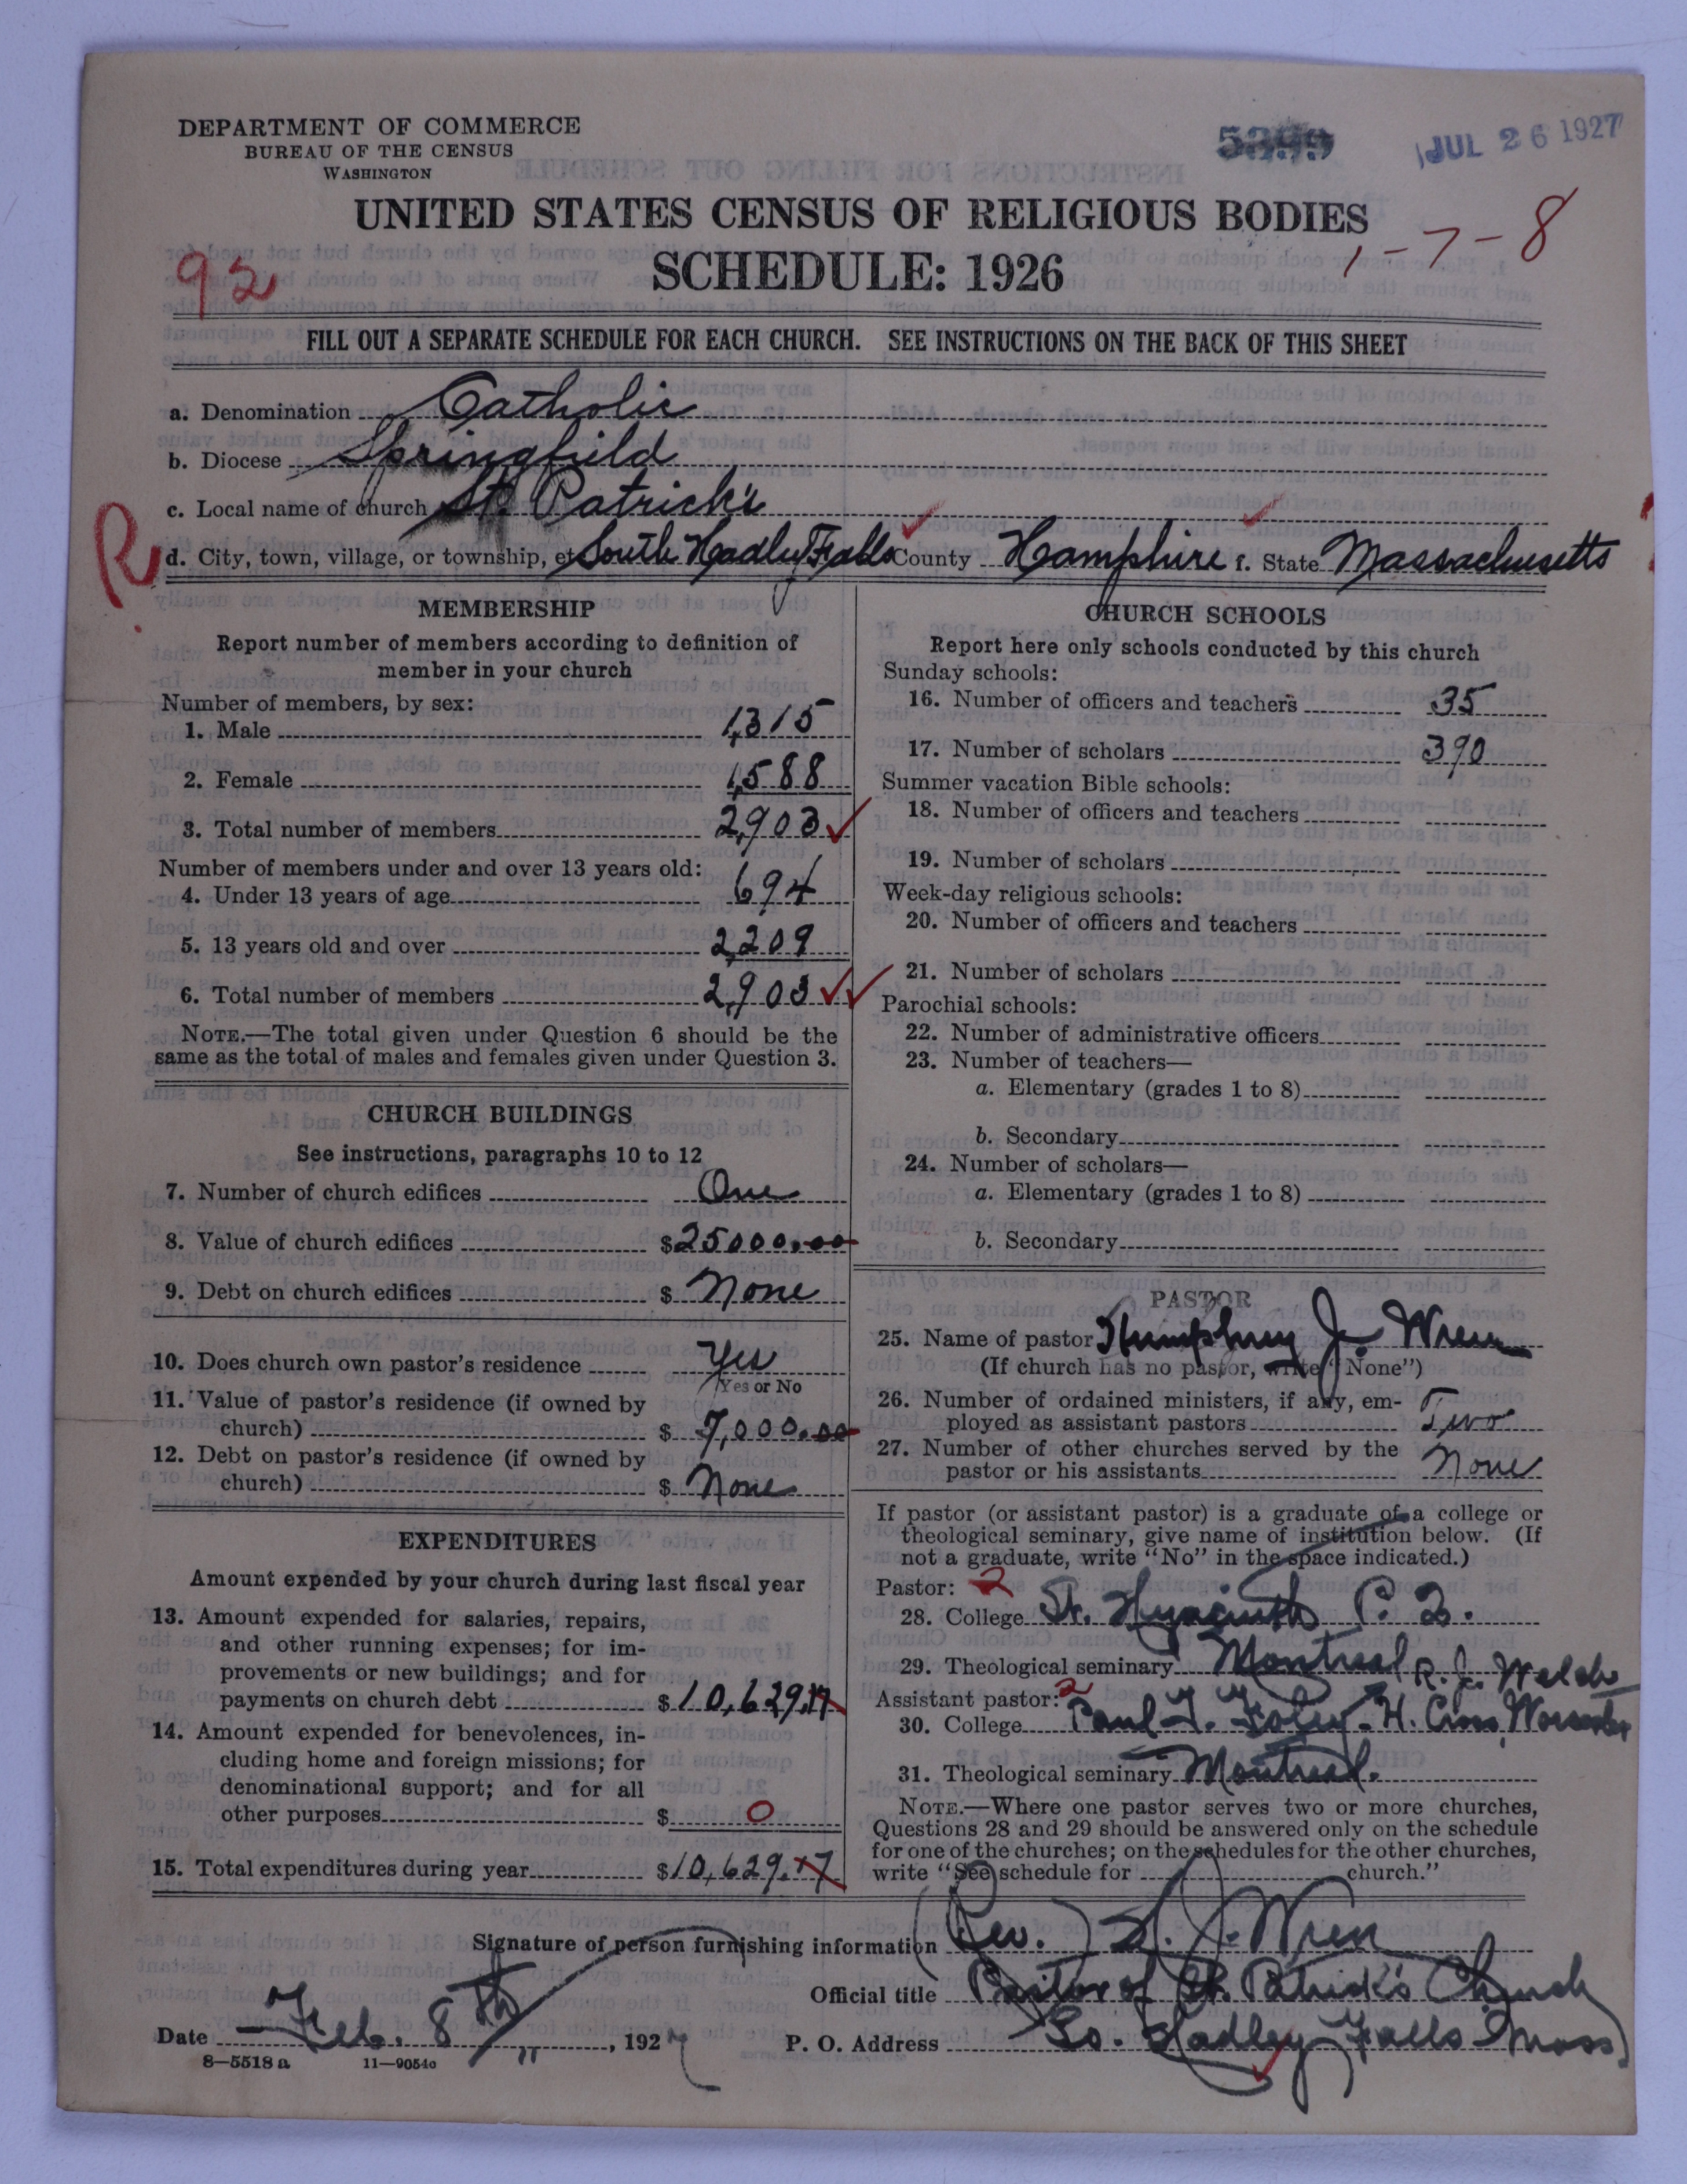 DEPARTMENT OF COMMERCE
BUREAU OF THE CENSUS
WASHINGTON
JUL 26 1927
UNITED STATES CENSUS OF RELIGIOUS BODIES
SCHEDULE: 1926
1-7-8
92
FILL OUT A SEPARATE SCHEDULE FOR EACH CHURCH. SEE INSTRUCTIONS ON THE BACK OF THIS SHEET
a. Denomination Catholic
b. Diocese Springfield
c. Local name of church St. Patrick's
R
d. City, town, village, or township, et South Hadley Falls County Hampshire f. State Massachusetts
MEMBERSHIP
Report number of members according to definition of
member in your church
Number of members, by sex:
1. Male 1,315
2. Female 1,588
3. Total number of members 2,903
Number of members under and over 13 years old:
4. Under 13 years of age 694
5. 13 years old and over 2,209
6. Total number of members 2,903
NOTE.—The total given under Question 6 should be the
same as the total of males and females given under Question 3.
CHURCH BUILDINGS
See instructions, paragraphs 10 to 12
7. Number of church edifices One
8. Value of church edifices $25000.00
9. Debt on church edifices $ None
10. Does church own pastor's residence Yes
Yes or No
11. Value of pastor's residence (if owned by
church) $ 7,000.00
12. Debt on pastor's residence (if owned by
church) $ None
EXPENDITURES
Amount expended by your church during last fiscal year
13. Amount expended for salaries, repairs,
and other running expenses; for im-
provements or new buildings; and for
payments on church debt $10,629.17
14. Amount expended for benevolences, in-
cluding home and foreign missions; for
denominational support; and for all
other purposes $ 0
15. Total expenditures during year $10,629.17
CHURCH SCHOOLS
Report here only schools conducted by this church
Sunday schools:
16. Number of officers and teachers 35
17. Number of scholars 390
Summer vacation Bible schools:
18. Number of officers and teachers
19. Number of scholars
Week-day religious schools:
20. Number of officers and teachers
21. Number of scholars
Parochial schools:
22. Number of administrative officers
23. Number of teachers—
a. Elementary (grades 1 to 8)
b. Secondary
24. Number of scholars—
a. Elementary (grades 1 to 8)
b. Secondary
PASTOR
25. Name of pastor Humphrey J. Wren
(If church has no pastor, write "None")
26. Number of ordained ministers, if any, em-
ployed as assistant pastors Two
27. Number of other churches served by the
pastor or his assistants None
If pastor (or assistant pastor) is a graduate of a college or
theological seminary, give name of institution below. (If
not a graduate, write "No" in the space indicated.)
Pastor: 2
28. College St. Hyacinth P. Q.
29. Theological seminary Montreal R. J. Welch
Assistant pastor: 2
30. College Paul F. Foley - H. Cross, Worcester
31. Theological seminary Montreal.
NOTE.—Where one pastor serves two or more churches,
Questions 28 and 29 should be answered only on the schedule
for one of the churches; on the schedules for the other churches,
write "See schedule for church."
Signature of person furnishing information (Rev.) H. J. Wren
Official title Pastor of St. Patrick's Church
Date Feb. 8th, 1927 P. O. Address So. Hadley Falls Mass
8—5518 a 11—9054c